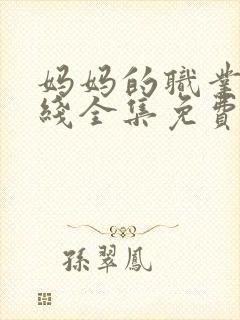 妈妈的職業
綫全集免費
孫翠鳳